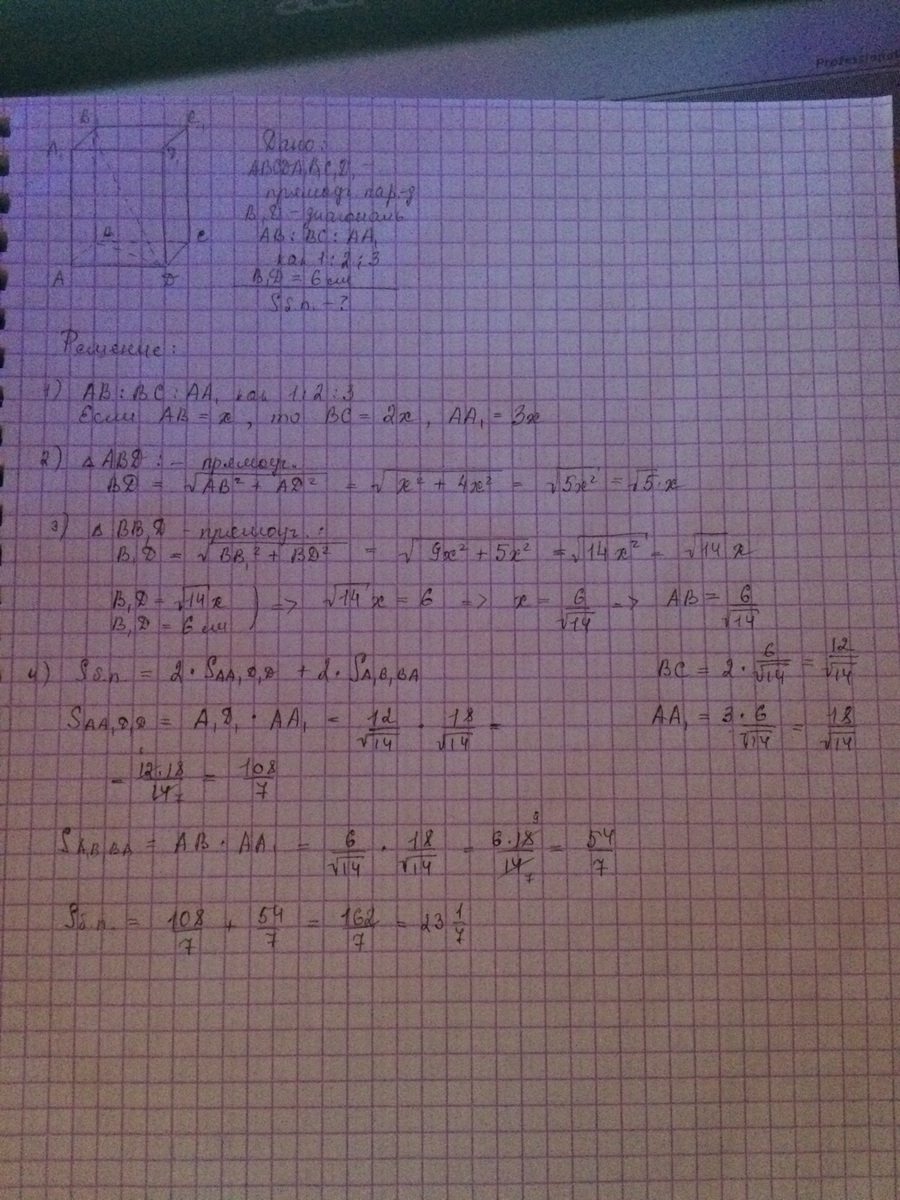 Professional
B₁ C₁
A₁ D₁
B C
A D
Дано:
ABCDA₁B₁C₁D₁ –
прямоуг. пар-д
B₁D – диагональ
AB : BC : AA₁
как 1 : 2 : 3
B₁D = 6 см
Sб.п. – ?
Решение:
1) AB : BC : AA₁ как 1 : 2 : 3
Если AB = x, то BC = 2x, AA₁ = 3x
2) △ ABD : – прямоуг.
BD = √(AB² + AD²) = √(x² + 4x²) = √(5x²) = √5·x
3) △ BB₁D – прямоуг. :
B₁D = √(BB₁² + BD²) = √(9x² + 5x²) = √(14x²) = √14 x
B₁D = √14 x
B₁D = 6 см ) => √14 x = 6 => x = 6/√14 => AB = 6/√14
BC = 2 · 6/√14 = 12/√14
4) Sб.п. = 2 · SAA₁D₁D + 2 · SA₁B₁BA
SAA₁D₁D = A₁D₁ · AA₁ = 12/√14 · 18/√14 =
AA₁ = 3 · 6/√14 = 18/√14
= 12·18/14 7 = 108/7
SA₁B₁BA = AB · AA₁ = 6/√14 · 18/√14 = 6·18 9/14 7 = 54/7
Sб.п. = 108/7 + 54/7 = 162/7 = 23 1/7